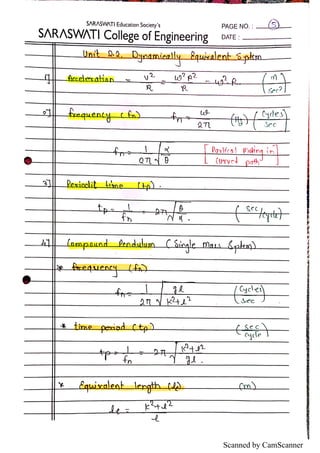 SARASWATI Education Society's
SARASWATI College of Engineering
PAGE NO. : 5
DATE :
Unit 2.2. Dynamically Equivalent System
1] Acceleration = v²/R = ω²R²/R = ω²R (m/sec²)
2] frequency (fn) fn = ω/2π (Hz) (Cycles/sec)
fn = 1/2π √(α/θ) [Particl Moving in Curved path]
3] Periodic time (tp)
tp = 1/fn = 2π √(θ/α) (sec/cycle)
4] Compound Pendulum (Single mass System)
* frequency (fn)
fn = 1/2π √(gl/k²+l²) (Cycles/sec)
* time period (tp) (sec/cycle)
tp = 1/fn = 2π √(k²+l²/gl)
* Equivalent length (le) (m)
le = k²+l²/l
Scanned by CamScanner